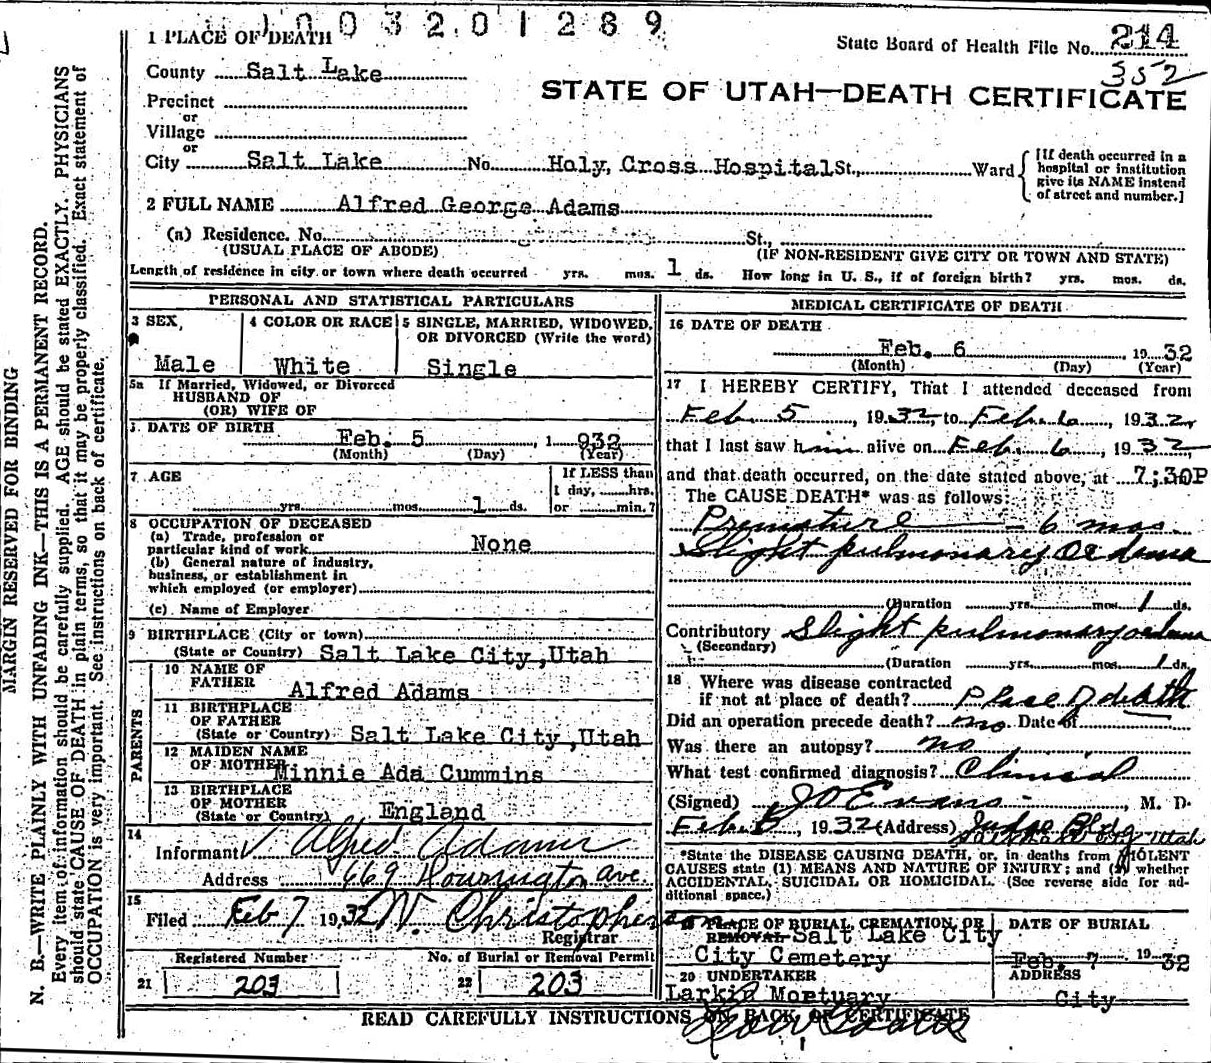 1003201289
State Board of Health File No. 214
352
STATE OF UTAH—DEATH CERTIFICATE
1 PLACE OF DEATH
County Salt Lake
Precinct
or
Village
or
City Salt Lake No. Holy, Cross Hospital St., Ward
[If death occurred in a hospital or institution give its NAME instead of street and number.]
2 FULL NAME Alfred George Adams
(a) Residence. No. St.,
(USUAL PLACE OF ABODE) (IF NON-RESIDENT GIVE CITY OR TOWN AND STATE)
Length of residence in city or town where death occurred yrs. mos. 1 ds. How long in U. S., if of foreign birth? yrs. mos. ds.
PERSONAL AND STATISTICAL PARTICULARS
3 SEX
Male
4 COLOR OR RACE
White
5 SINGLE, MARRIED, WIDOWED, OR DIVORCED (Write the word)
Single
5a If Married, Widowed, or Divorced
HUSBAND OF
(OR) WIFE OF
DATE OF BIRTH Feb. 5, 1932
(Month) (Day) (Year)
7 AGE
yrs. mos. 1 ds.
If LESS than
1 day, hrs.
or min.?
8 OCCUPATION OF DECEASED
(a) Trade, profession or
particular kind of work None
(b) General nature of industry,
business, or establishment in
which employed (or employer)
(c) Name of Employer
9 BIRTHPLACE (City or town)
(State or Country) Salt Lake City, Utah
PARENTS
10 NAME OF
FATHER Alfred Adams
11 BIRTHPLACE
OF FATHER
(State or Country) Salt Lake City, Utah
12 MAIDEN NAME
OF MOTHER Minnie Ada Cummins
13 BIRTHPLACE
OF MOTHER
(State or Country) England
14
Informant Alfred Adams
Address 669 Ave.
15
Filed Feb 7 1932 W. Christopherson
Registrar
Registered Number
21 203
No. of Burial or Removal Permit
22 203
MEDICAL CERTIFICATE OF DEATH
16 DATE OF DEATH
Feb. 6, 1932
(Month) (Day) (Year)
17 I HEREBY CERTIFY, That I attended deceased from
Feb. 5, 1932, to Feb. 6, 1932
that I last saw him alive on Feb. 6, 1932
and that death occurred, on the date stated above, at 7;30P
The CAUSE DEATH* was as follows:
Premature — 6 mos.
Slight pulmonary Oedema
(Duration yrs. mos. 1 ds.
Contributory Slight pulmonary oedema
(Secondary)
(Duration yrs. mos. 1 ds.
18 Where was disease contracted
if not at place of death? Place of death
Did an operation precede death? no Date of
Was there an autopsy? no
What test confirmed diagnosis? Clinical
(Signed) J O Evans, M. D.
Feb. 6, 1932 (Address) Judge Bldg Utah
*State the DISEASE CAUSING DEATH, or, in deaths from VIOLENT
CAUSES state (1) MEANS AND NATURE OF INJURY; and (2) whether
ACCIDENTAL, SUICIDAL OR HOMICIDAL. (See reverse side for ad-
ditional space.)
19 PLACE OF BURIAL, CREMATION, OR
REMOVAL Salt Lake City
City Cemetery
DATE OF BURIAL
Feb. 7 1932
20 UNDERTAKER
Larkin Mortuary
ADDRESS
City
READ CAREFULLY INSTRUCTIONS ON BACK OF CERTIFICATE
MARGIN RESERVED FOR BINDING
N. B.—WRITE PLAINLY WITH UNFADING INK—THIS IS A PERMANENT RECORD.
Every item of information should be carefully supplied. AGE should be stated EXACTLY. PHYSICIANS
should state CAUSE OF DEATH in plain terms, so that it may be properly classified. Exact statement of
OCCUPATION is very important. See instructions on back of certificate.